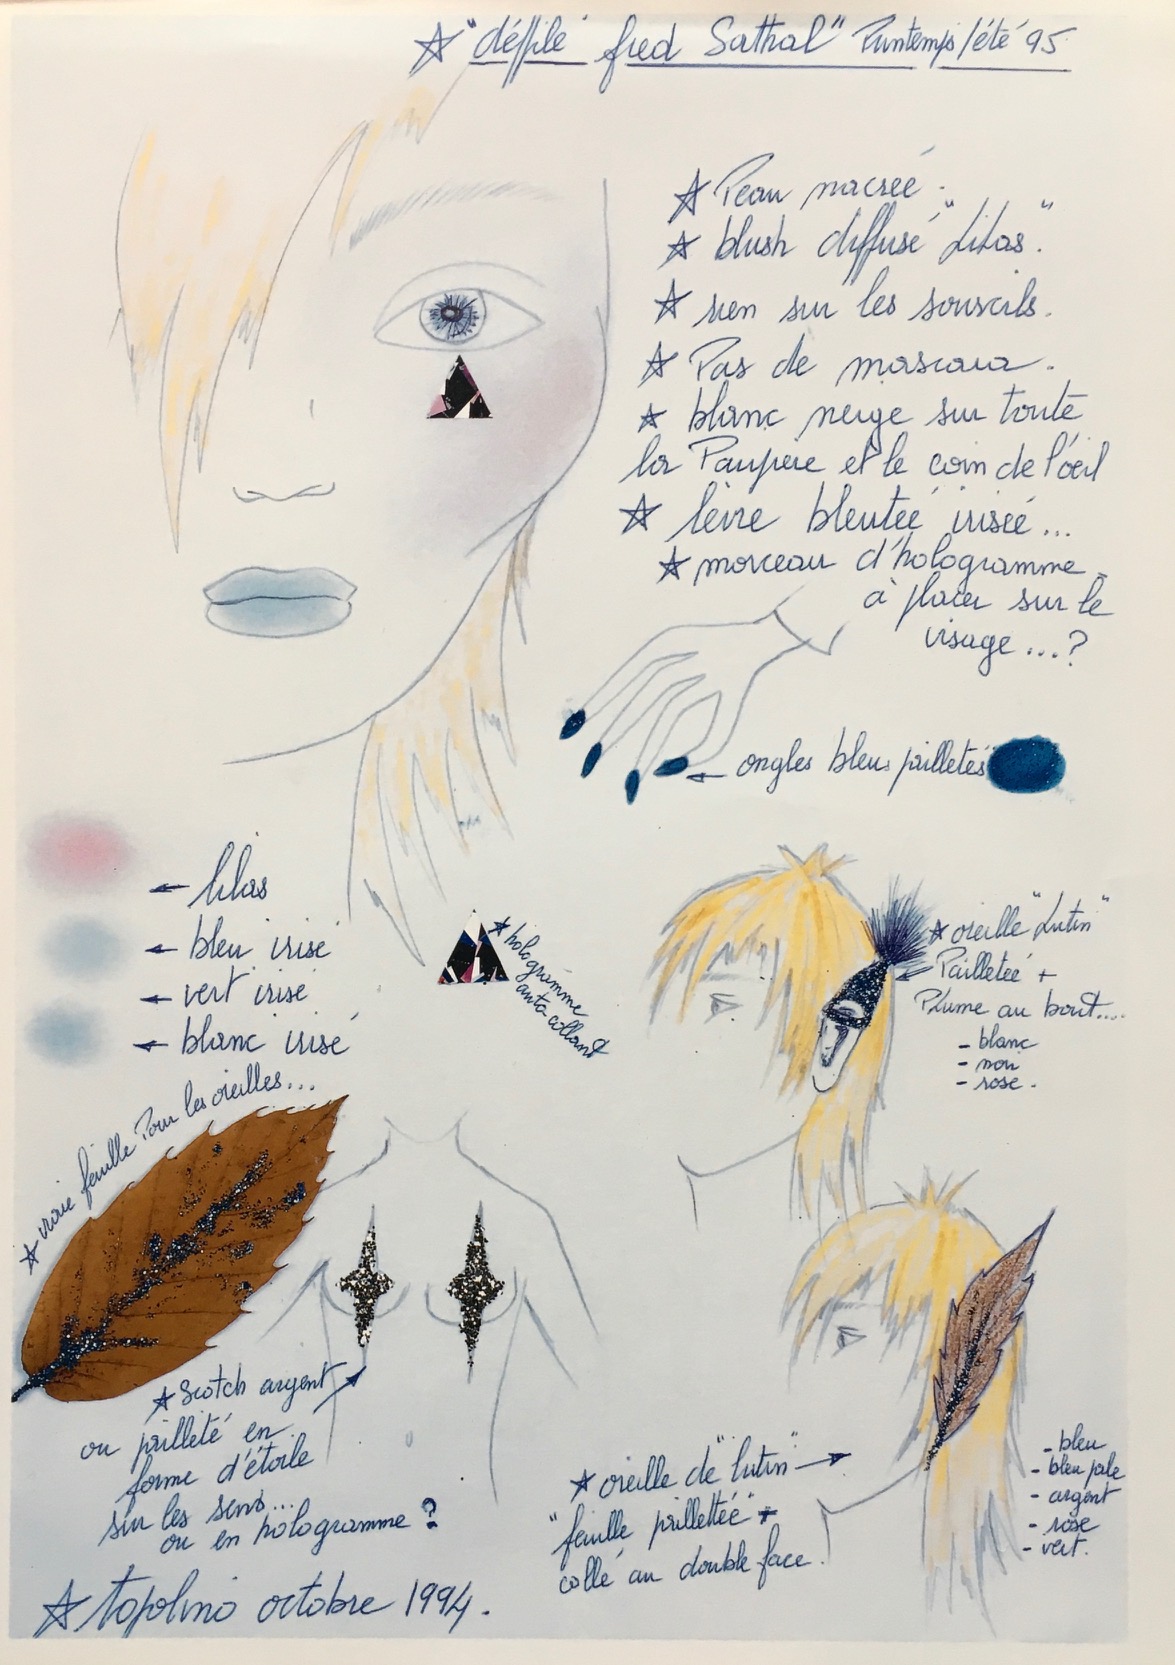 ☆ "défilé fred Sathal" Printemps/été 95
☆ Peau nacrée.
☆ blush diffusé "Lilas".
☆ rien sur les sourcils.
☆ Pas de mascara.
☆ blanc neige sur toute
la Paupière et le coin de l'œil
☆ lèvre bleutée irisée...
☆ morceau d'hologramme
à placer sur le
visage...?
ongles bleus pailletés
lilas
bleu irisé
vert irisé
blanc irisé
☆ hologramme
auto-collant
☆ oreille "Lutin"
Pailletée +
Plume au bout....
- blanc
- noir
- rose.
☆ vraie feuille Pour les oreilles...
☆ Scotch argent
ou pailleté en
forme d'étoile
sur les seins...
ou en hologramme ?
☆ oreille de "lutin"
"feuille paillettée" +
collé au double face.
- bleu
- bleu pale
- argent
- rose
- vert.
☆ topolino octobre 1994.